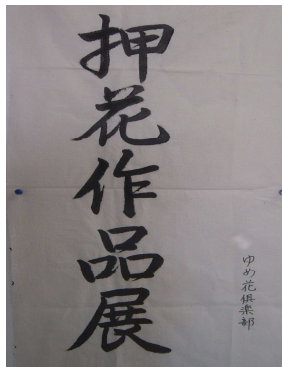 押花作品展
ゆめ花倶楽部